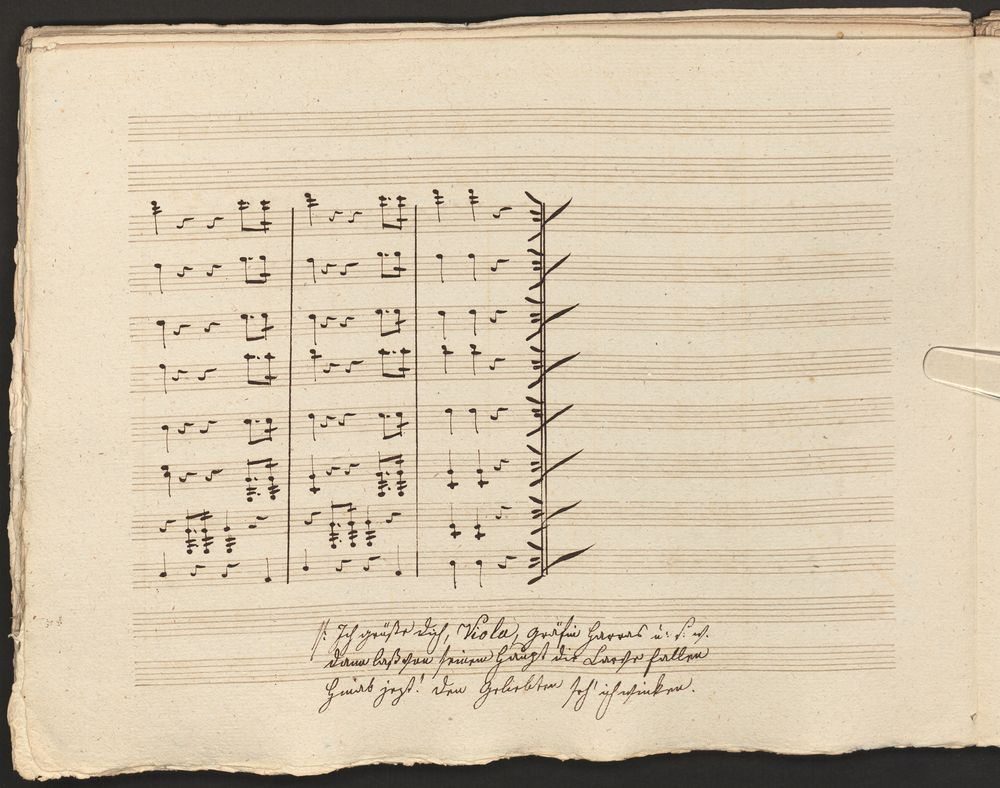 /: Ich grüße dich, Viola, Gräfin Harras u: s. w.
dann laßt von seinem Haupt die Larve fallen
Hinab jezt! den Geliebten seh' ich winken.